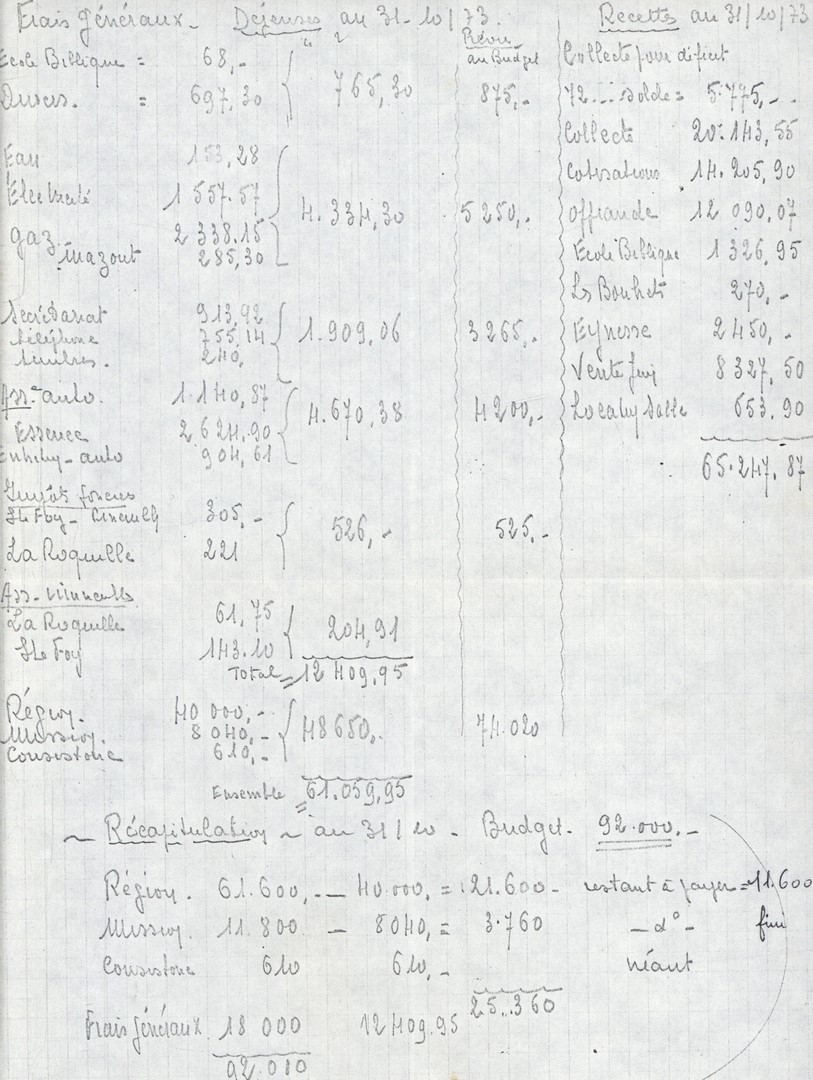 Frais généraux - Dépenses au 31-10/73. Recettes au 31/10/73
Prévu
Ecole Biblique = 68,- au Budget Collecte pour déficit
Divers. = 697,30 765,30 875,- 72... solde = 5.775,-
Collecte 20.143,55
Eau 153,28 Cotisations 14.205,90
Electricité 1 557.57 4.334,30 5 250,- offrande 12 090,07
gaz. 2 338.15 Ecole Biblique 1 326,95
mazout 285,30 Les Bouhets 270,-
Secrétariat 913,92 1.909,06 3265,- Eynesse 2 450,-
téléphone 755,14
timbres. 240, Vente 8 327,50
Ass.ce auto. 1.140,87 4.670,38 4200,- Salle 653.90
Essence 2 624.90
auto 904,61 65.247,87
Impôts fonciers
Ste Foy - 305,- 526,- 525,-
La Roquille 221
Ass-
La Roquille 61,75 204,91
Ste Foy 143.10
Total = 12 409,95
Région. 40 000,- 48 650,- 74.020
Mission. 8 040,-
Consistoire 610,-
Ensemble = 61.059,95
~ Récapitulation ~ au 31/10 - Budget. 92.000,-
Région. 61.600,- - 40.000,- = 21.600- restant à payer = 11.600
Mission. 11.800 - 8040,- = 3.760 - d° - fini
Consistoire 610 610,- néant
25.360
Frais généraux 18 000 12 409.95
92.010